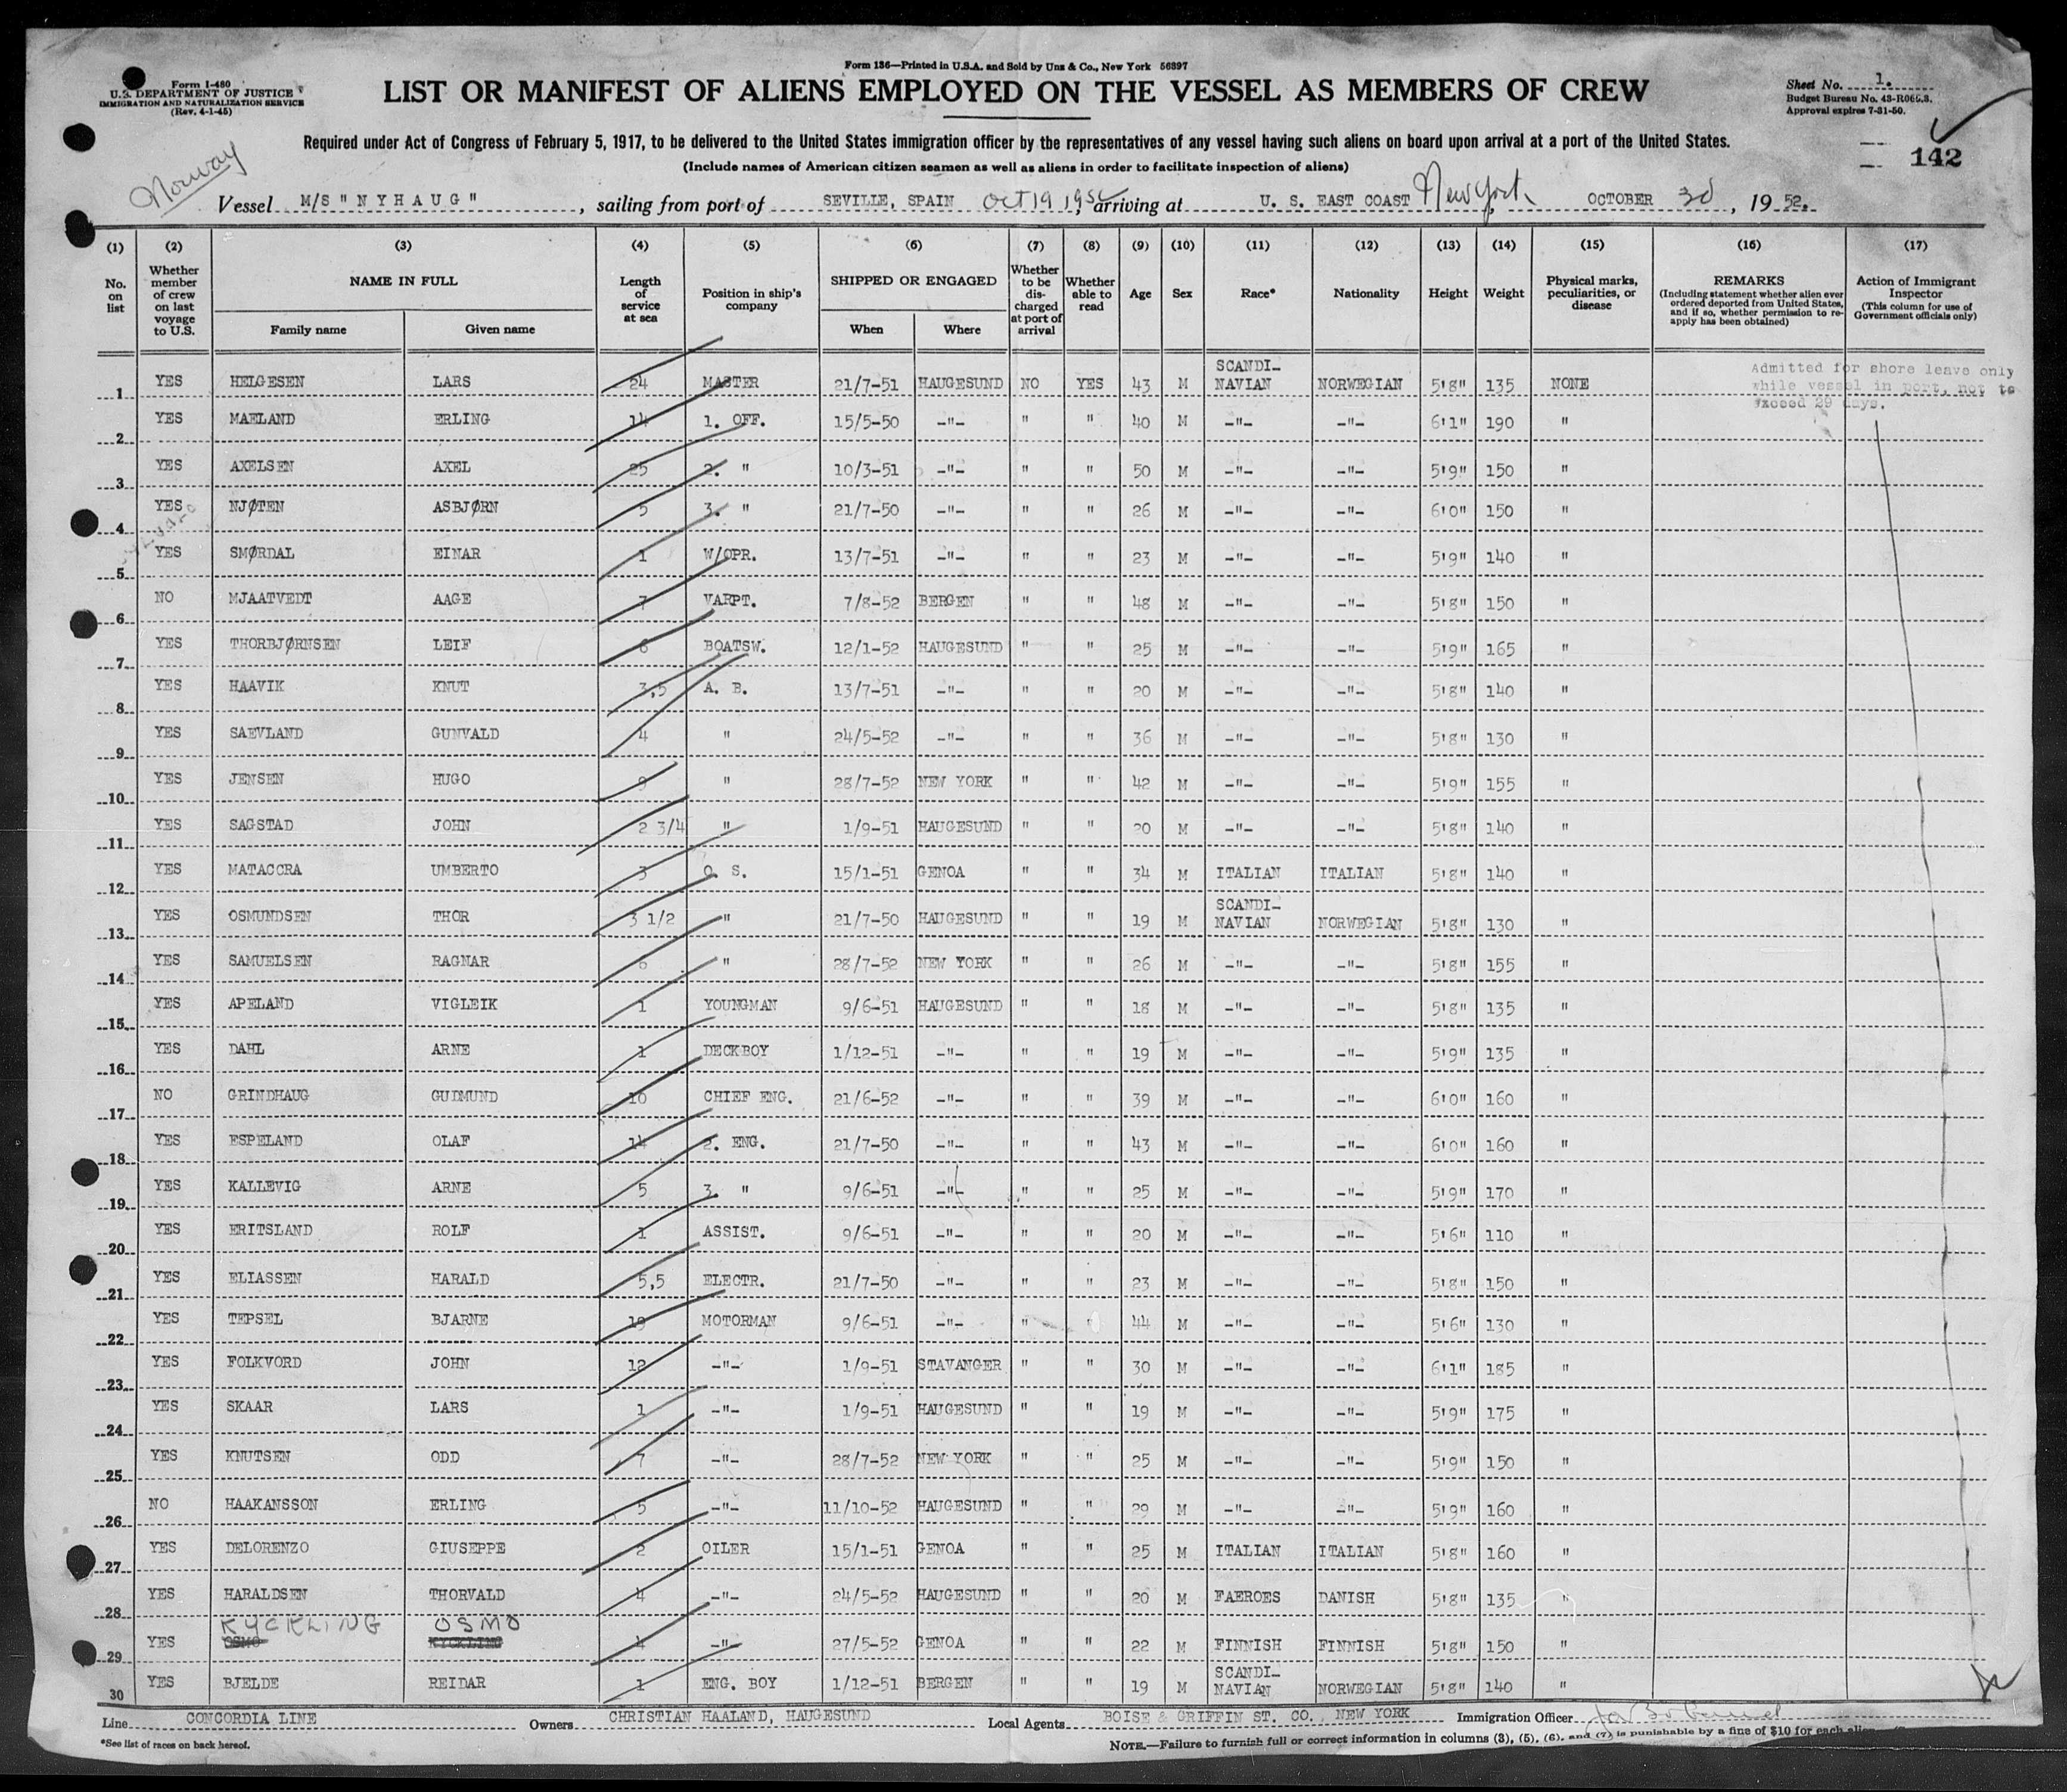 Form 136—Printed in U.S.A. and Sold by Unz & Co., New York 56897
Form I-480
U.S. DEPARTMENT OF JUSTICE
IMMIGRATION AND NATURALIZATION SERVICE
(Rev. 4-1-45)
LIST OR MANIFEST OF ALIENS EMPLOYED ON THE VESSEL AS MEMBERS OF CREW
Sheet No. 1.
Budget Bureau No. 43-R065.3.
Approval expires 7-31-50.
Required under Act of Congress of February 5, 1917, to be delivered to the United States immigration officer by the representatives of any vessel having such aliens on board upon arrival at a port of the United States.
(Include names of American citizen seamen as well as aliens in order to facilitate inspection of aliens)
142
Norway
Vessel M/S "NYHAUG", sailing from port of SEVILLE, SPAIN Oct 19 1952, arriving at U. S. EAST COAST New York, OCTOBER 30, 19 52.
(1) (2) (3) (4) (5) (6) (7) (8) (9) (10) (11) (12) (13) (14) (15) (16) (17)
No. on list
Whether member of crew on last voyage to U.S.
NAME IN FULL
Family name Given name
Length of service at sea
Position in ship's company
SHIPPED OR ENGAGED
When Where
Whether to be discharged at port of arrival
Whether able to read
Age
Sex
Race*
Nationality
Height
Weight
Physical marks, peculiarities, or disease
REMARKS
(Including statement whether alien ever ordered deported from United States, and if so, whether permission to re-apply has been obtained)
Action of Immigrant Inspector
(This column for use of Government officials only)
Admitted for shore leave only
while vessel in port, not to
exceed 29 days.
1 YES HELGESEN LARS 24 MASTER 21/7-51 HAUGESUND NO YES 43 M SCANDI-NAVIAN NORWEGIAN 5'8" 135 NONE
2 YES MAELAND ERLING 14 1. OFF. 15/5-50 -"- " " 40 M -"- -"- 6'1" 190 "
3 YES AXELSEN AXEL 25 2. " 10/3-51 -"- " " 50 M -"- -"- 5'9" 150 "
4 YES NJØTEN ASBJØRN 5 3. " 21/7-50 -"- " " 26 M -"- -"- 6'0" 150 "
5 YES SMØRDAL EINAR 1 W/OPR. 13/7-51 -"- " " 23 M -"- -"- 5'9" 140 "
6 NO MJAATVEDT AAGE 7 VARPT. 7/8-52 BERGEN " " 48 M -"- -"- 5'8" 150 "
7 YES THORBJØRNSEN LEIF 6 BOATSW. 12/1-52 HAUGESUND " " 25 M -"- -"- 5'9" 165 "
8 YES HAAVIK KNUT 3,5 A. B. 13/7-51 -"- " " 20 M -"- -"- 5'8" 140 "
9 YES SAEVLAND GUNVALD 4 " 24/5-52 -"- " " 36 M -"- -"- 5'8" 130 "
10 YES JENSEN HUGO 9 " 28/7-52 NEW YORK " " 42 M -"- -"- 5'9" 155 "
11 YES SAGSTAD JOHN 2 3/4 " 1/9-51 HAUGESUND " " 20 M -"- -"- 5'8" 140 "
12 YES MATACCRA UMBERTO 3 O. S. 15/1-51 GENOA " " 34 M ITALIAN ITALIAN 5'8" 140 "
13 YES OSMUNDSEN THOR 3 1/2 " 21/7-50 HAUGESUND " " 19 M SCANDI-NAVIAN NORWEGIAN 5'8" 130 "
14 YES SAMUELSEN RAGNAR 6 " 28/7-52 NEW YORK " " 26 M -"- -"- 5'8" 155 "
15 YES APELAND VIGLEIK 1 YOUNGMAN 9/6-51 HAUGESUND " " 18 M -"- -"- 5'8" 135 "
16 YES DAHL ARNE 1 DECKBOY 1/12-51 -"- " " 19 M -"- -"- 5'9" 135 "
17 NO GRINDHAUG GUDMUND 10 CHIEF ENG. 21/6-52 -"- " " 39 M -"- -"- 6'0" 160 "
18 YES ESPELAND OLAF 14 2. ENG. 21/7-50 -"- " " 43 M -"- -"- 6'0" 160 "
19 YES KALLEVIG ARNE 5 3. " 9/6-51 -"- " " 25 M -"- -"- 5'9" 170 "
20 YES ERITSLAND ROLF 1 ASSIST. 9/6-51 -"- " " 20 M -"- -"- 5'6" 110 "
21 YES ELIASSEN HARALD 5,5 ELECTR. 21/7-50 -"- " " 23 M -"- -"- 5'8" 150 "
22 YES TEPSEL BJARNE 19 MOTORMAN 9/6-51 -"- " " 44 M -"- -"- 5'6" 130 "
23 YES FOLKVORD JOHN 12 -"- 1/9-51 STAVANGER " " 30 M -"- -"- 6'1" 185 "
24 YES SKAAR LARS 1 -"- 1/9-51 HAUGESUND " " 19 M -"- -"- 5'9" 175 "
25 YES KNUTSEN ODD 7 -"- 28/7-52 NEW YORK " " 25 M -"- -"- 5'9" 150 "
26 NO HAAKANSSON ERLING 5 -"- 11/10-52 HAUGESUND " " 29 M -"- -"- 5'9" 160 "
27 YES DELORENZO GIUSEPPE 2 OILER 15/1-51 GENOA " " 25 M ITALIAN ITALIAN 5'8" 160 "
28 YES HARALDSEN THORVALD 4 -"- 24/5-52 HAUGESUND " " 20 M FAEROES DANISH 5'8" 135 "
KYCKLING OSMO
29 YES OSMO KYCKLING 4 -"- 27/5-52 GENOA " " 22 M FINNISH FINNISH 5'8" 150 "
30 YES BJELDE REIDAR 1 ENG. BOY 1/12-51 BERGEN " " 19 M SCANDI-NAVIAN NORWEGIAN 5'8" 140 "
Line CONCORDIA LINE Owners CHRISTIAN HAALAND, HAUGESUND Local Agents BOISE & GRIFFIN ST. CO. NEW YORK Immigration Officer
*See list of races on back hereof.
NOTE.—Failure to furnish full or correct information in columns (3), (5), (6), and (7) is punishable by a fine of $10 for each alien